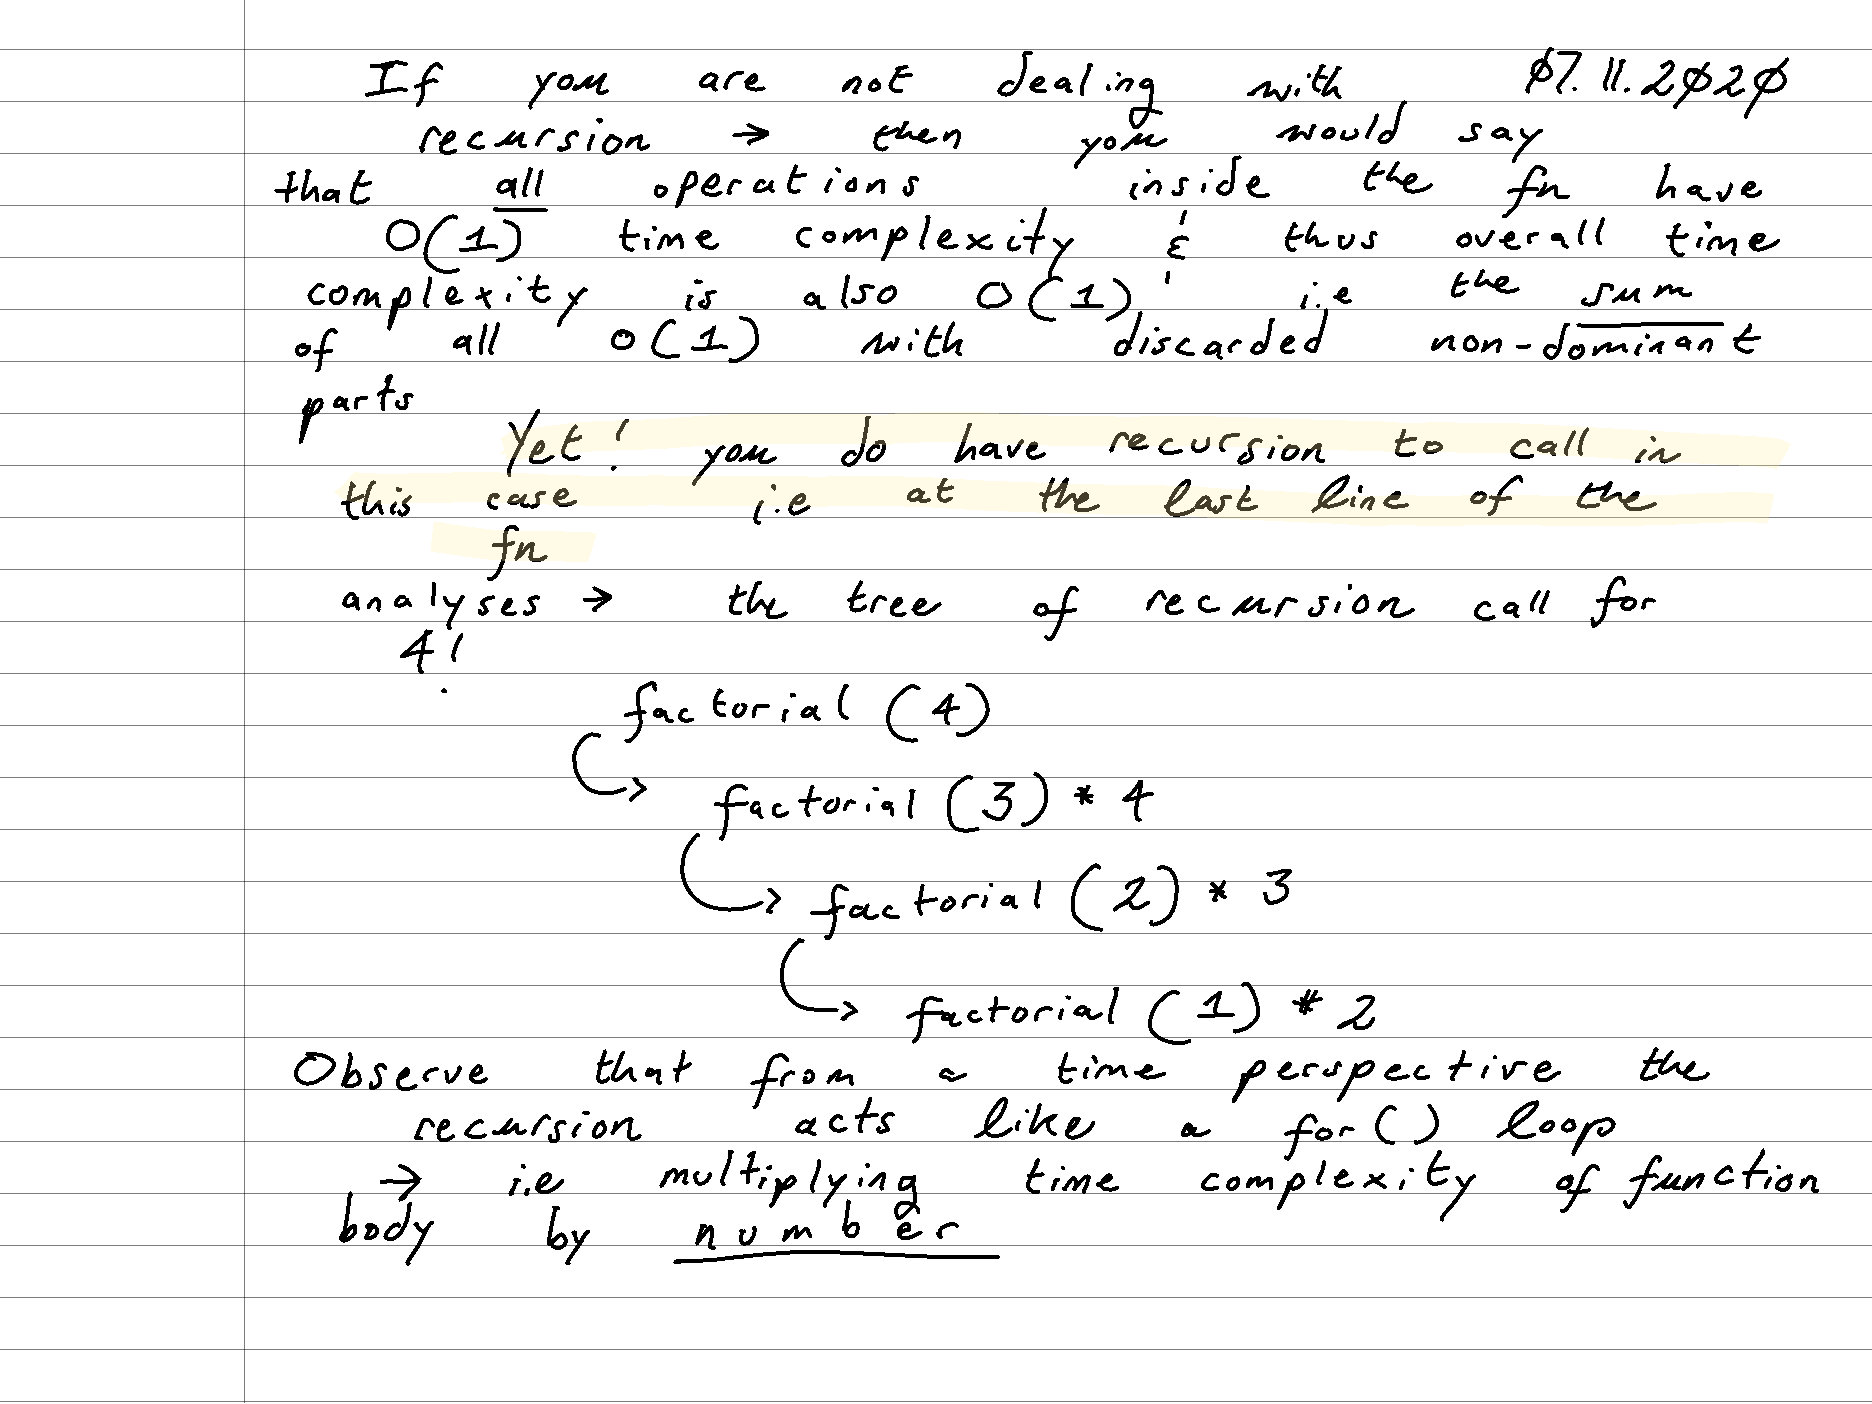 If you are not dealing with 07.11.2020
recursion → then you would say
that all operations inside the fn have
O(1) time complexity & thus overall time
complexity is also O(1) i.e the sum
of all O(1) with discarded non-dominant
parts
Yet! you do have recursion to call in
this case i.e at the last line of the
fn
analyses → the tree of recursion call for
4!
factorial (4)
factorial (3) * 4
factorial (2) * 3
factorial (1) * 2
Observe that from a time perspective the
recursion acts like a for() loop
→ i.e multiplying time complexity of function
body by number